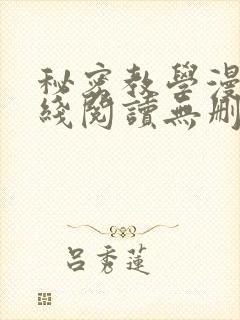 秘密教學漫
綫閱讀無刪
呂秀蓮